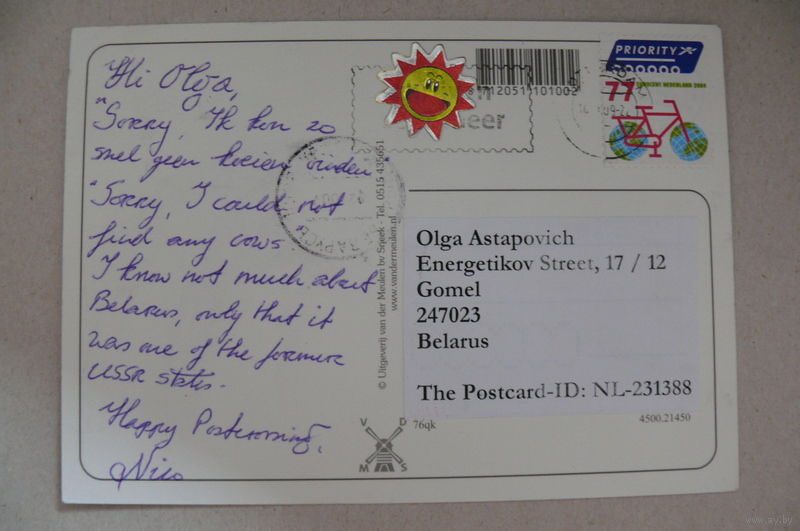 Hi Olga,
"Sorry, Ik kon zo
snel geen koeien vinden"
"Sorry, I could not
find any cows
I know not much about
Belarus, only that it
was one of the former
USSR states.
Happy Postcrossing,
Nico
PRIORITY
77
NEDERLAND
© Uitgeverij van der Meulen bv Sneek - Tel. 0515 435651
www.vandermeulen.nl
Olga Astapovich
Energetikov Street, 17 / 12
Gomel
247023
Belarus
The Postcard-ID: NL-231388
V D
M S
76qk
4500.21450
www.ay.by